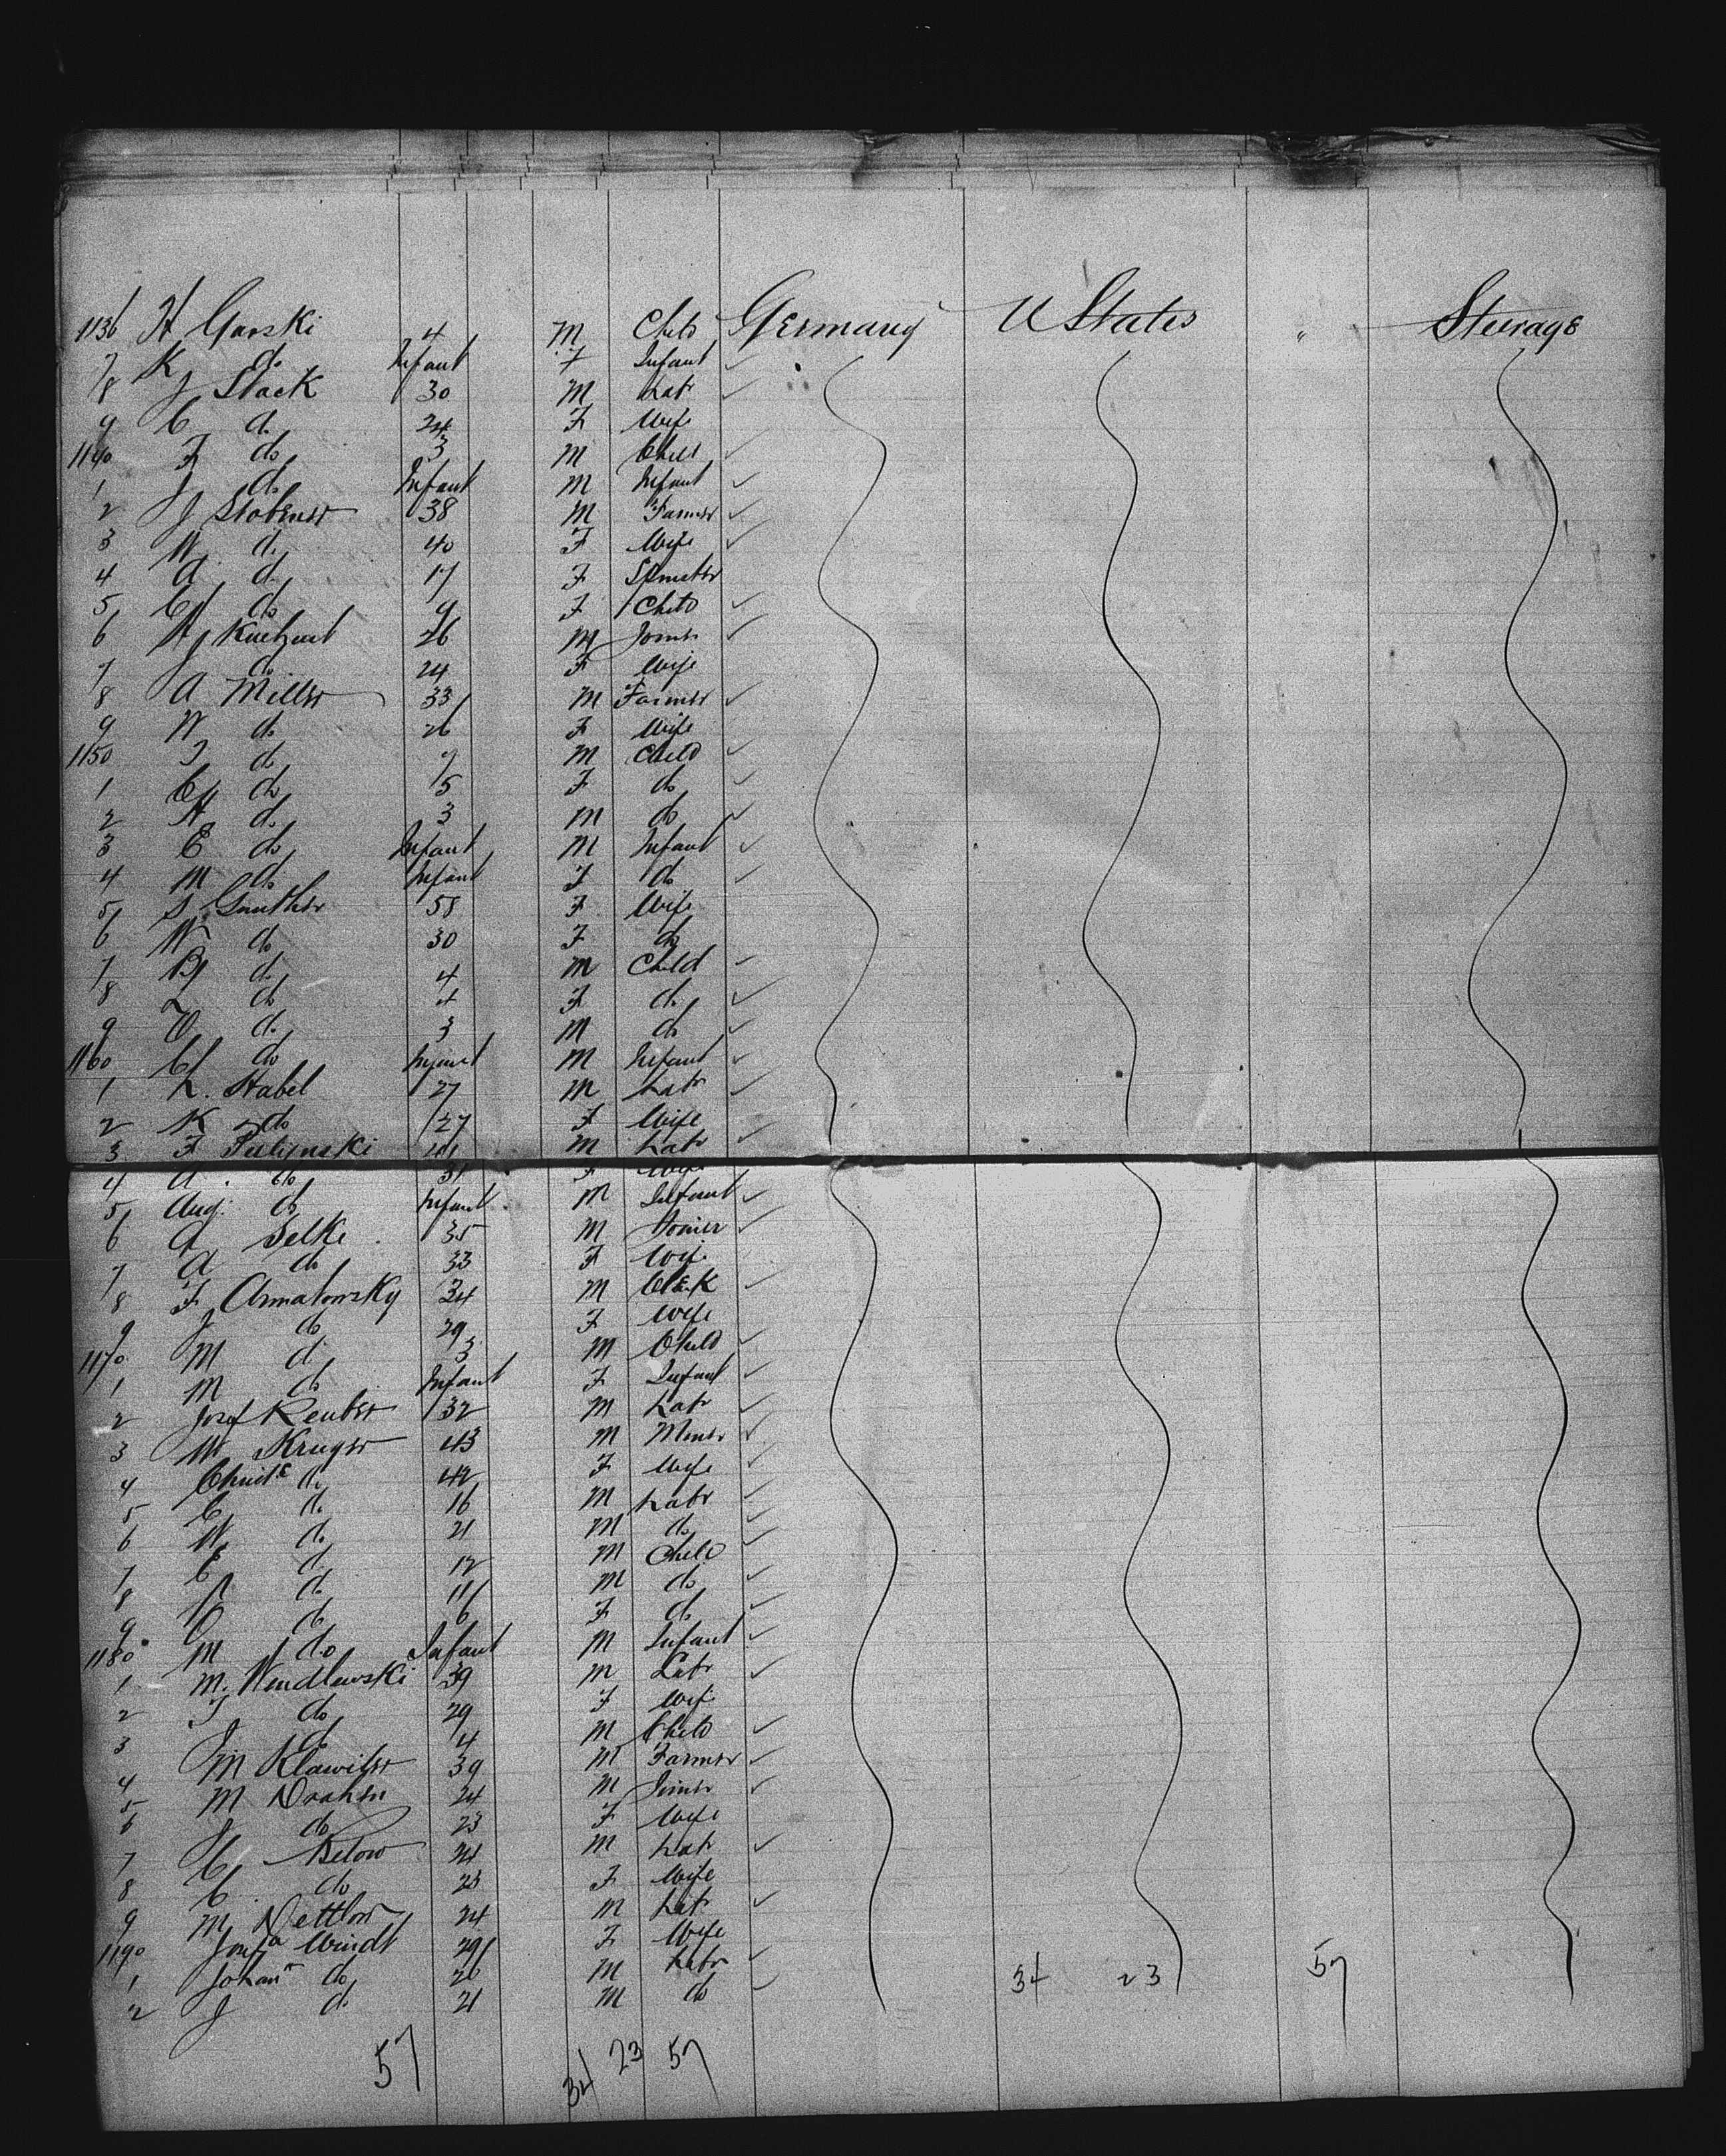 1136 H Gorski 4 M Child Germany U States " Sterage
7 K do Infant F Infant
8 J Stack 30 M Labr
9 C do 24 F Wife
1140 F do 3 M Child
1 J do Infant M Infant
2 J Stobener 38 M Farmer
3 W do 40 F Wife
4 A do 17 F Spinster
5 C do 9 F Child
6 A 26 M Joiner
7 do 24 F Wife
8 A Miller 33 M Farmer
9 W do 26 F Wife
1150 J do 9 M Child
1 C do 5 F do
2 A do 3 M do
3 E do Infant M Infant
4 M do Infant F do
5 S Gunther 58 F Wife
6 W do 30 F do
7 B do 4 M Child
8 L do 4 F do
9 O do 3 M do
1160 C do Infant M Infant
1 L. Stabel 27 M Labr
2 K do 27 F Wife
3 F M Labr
4 A. do 31 F Wife
5 Aug. do Infant M Infant
6 A Selke 35 M Joiner
7 A do 33 F Wife
8 F Armatowsky 34 M Clerk
9 J do 29 F Wife
1170 M do 3 M Child
1 M do Infant F Infant
2 Josef Reuter 32 M Labr
3 W Kruger 43 M Miner
4 Christe do 42 F Wife
5 C do 16 M Labr
6 W do 21 M do
7 E do 12 M Child
8 A do 11 M do
9 O do 6 F do
1180 M do Infant M Infant
1 M. Wendlewski 39 M Labr
2 J do 29 F Wife
3 J do 4 M Child
4 M Klawiter 39 M Farmer
5 M Drahen 24 M Joiner
6 J do 23 F Wife
7 C Belov 24 M Labr
8 C do 23 F Wife
9 M Dettlow 24 M Labr
1190 Josefa Windt 29 F Wife
1 Johann do 20 M Labr
2 J do 21 M do
34 23 57
57 34 23 57